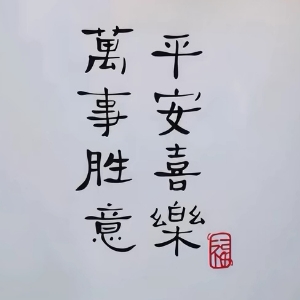 平安喜樂
萬事胜意
福